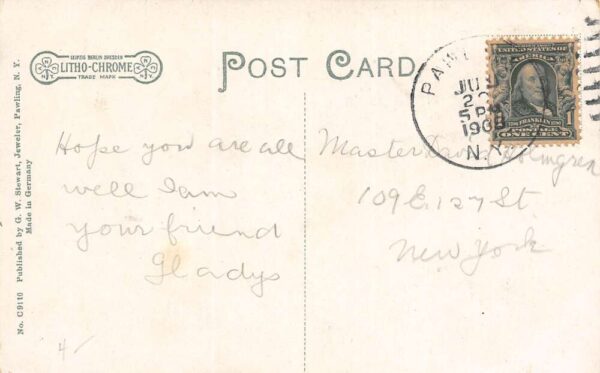 LEIPZIG BERLIN DRESDEN
LITHO-CHROME
TRADE MARK
POST CARD
No. C9110 Published by G. W. Stewart, Jeweler, Pawling, N. Y.
Made in Germany
Hope you are all
well I am
your friend
Gladys
4-
5 PM
N.Y.
UNITED STATES OF
AMERICA
FRANKLIN
1
POSTAGE
ONE CENT
Master Holmgren
109 E. 127 St
New York